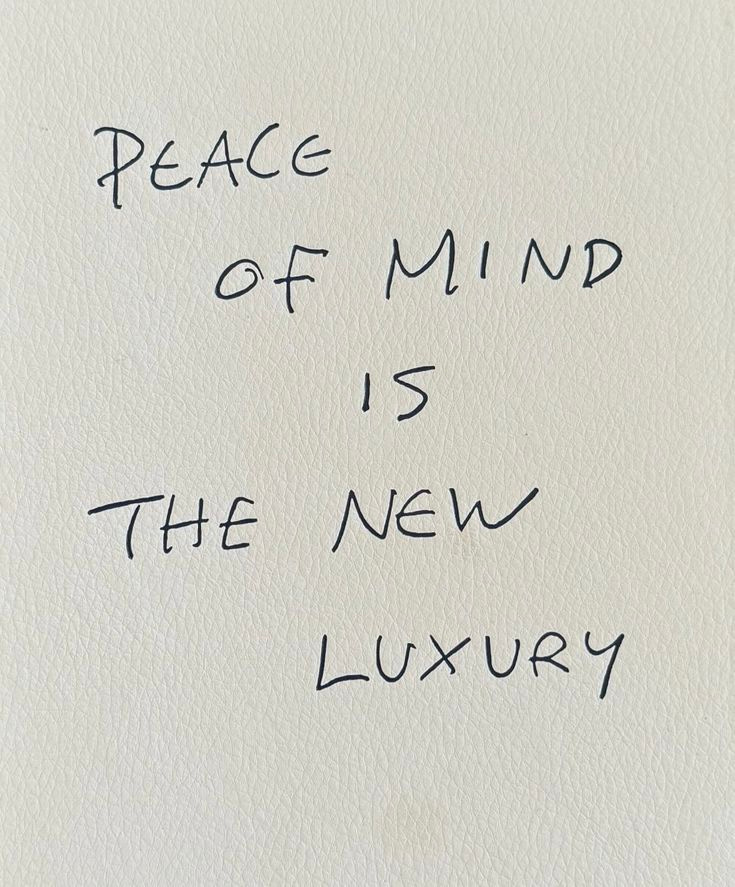 PEACE
OF MIND
IS
THE NEW
LUXURY